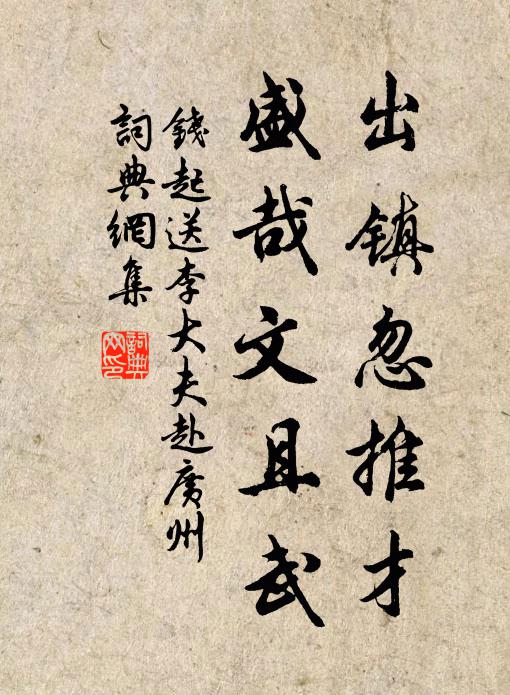 出镇忽推才
盛哉文且武
錢起送李大夫赴廣州
詞典網集
詞典
网印